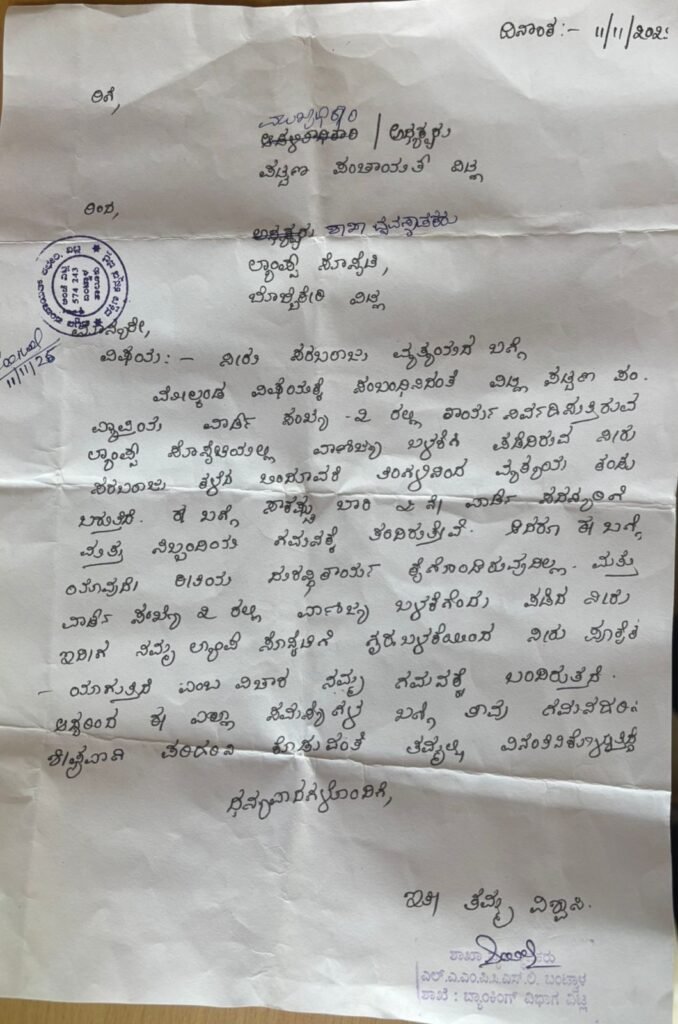 ದಿನಾಂಕ:- 11/11/202
ರಿಗೆ,
ಮುಖ್ಯಾಧಿಕಾರಿ
ಆಡಳಿತಾಧಿಕಾರಿ / ಅಧ್ಯಕ್ಷರು
ಪಟ್ಟಣ ಪಂಚಾಯತ್ ವಿಟ್ಲ
ರಿಂದ,
ಅಧ್ಯಕ್ಷರು ಶಾಖಾ ವ್ಯವಸ್ಥಾಪಕರು
ಲ್ಯಾಂಪ್ಸ್ ಸೊಸೈಟಿ,
ವಿಟ್ಲ
574 243
ಮಾನ್ಯರೇ,
11/11/25
ವಿಷಯ:- ನೀರು ಸರಬರಾಜು ವ್ಯತ್ಯಯದ ಬಗ್ಗೆ
ಮೇಲ್ಕಂಡ ವಿಷಯಕ್ಕೆ ಸಂಬಂಧಿಸಿದಂತೆ ವಿಟ್ಲ ಪಟ್ಟಣ ಪಂ.
ವ್ಯಾಪ್ತಿಯ ವಾರ್ಡ್ ಸಂಖ್ಯೆ -೩ ರಲ್ಲಿ ಕಾರ್ಯ ನಿರ್ವಹಿಸುತ್ತಿರುವ
ಲ್ಯಾಂಪ್ಸ್ ಸೊಸೈಟಿಯಲ್ಲಿ ವಾಣಿಜ್ಯ ಬಳಕೆಗೆ ಪಡೆದಿರುವ ನೀರು
ಸರಬರಾಜು ಕಳೆದ ತಿಂಗಳಿನಿಂದ ವ್ಯತ್ಯಯ ಕಂಡು
ಬರುತ್ತಿದೆ. ಈ ಬಗ್ಗೆ ಸಾಕಷ್ಟು ಬಾರಿ ೩ ನೇ ವಾರ್ಡ್ ಸದಸ್ಯರಿಗೆ
ಮತ್ತು ಸಿಬ್ಬಂದಿಯ ಗಮನಕ್ಕೆ ತಂದಿರುತ್ತೇವೆ. ಆದರೂ ಈ ಬಗ್ಗೆ
ಯಾವುದೇ ರೀತಿಯ ದುರಸ್ತಿ ಕಾರ್ಯ ಕೈಗೊಂಡಿರುವುದಿಲ್ಲ. ಮತ್ತು
ವಾರ್ಡ್ ಸಂಖ್ಯೆ ೩ ರಲ್ಲಿ ವಾಣಿಜ್ಯ ಬಳಕೆಗೆಂದು ಪಡೆದ ನೀರು
ಇದೀಗ ನಮ್ಮ ಲ್ಯಾಂಪ್ಸ್ ಸೊಸೈಟಿಗೆ ಗೃಹ ಬಳಕೆಯಿಂದ ನೀರು ಪೂರೈಕೆ
- ಯಾಗುತ್ತಿದೆ ಎಂಬ ವಿಚಾರ ನಮ್ಮ ಗಮನಕ್ಕೆ ಬಂದಿರುತ್ತದೆ.
ಆದ್ದರಿಂದ ಈ ಎಲ್ಲಾ ಸಮಸ್ಯೆಗಳ ಬಗ್ಗೆ ತಾವು ಗಮನಹರಿಸಿ
ಶೀಘ್ರವಾಗಿ ಪರಿಹರಿಸಿ ಕೊಡುವಂತೆ ತಮ್ಮಲ್ಲಿ ವಿನಂತಿಸಿಕೊಳ್ಳುತ್ತಿದ್ದೇವೆ
ಧನ್ಯವಾದಗಳೊಂದಿಗೆ,
ಇತೀ ತಮ್ಮ ವಿಶ್ವಾಸಿ.
ಶಾಖಾ
ಎಲ್.ಎ.ಎಂ.ಪಿ.ಸಿ.ಎಸ್.ಲಿ. ಬಂಟ್ವಾಳ
ಶಾಖೆ : ಬ್ಯಾಂಕಿಂಗ್ ವಿಭಾಗ ವಿಟ್ಲ